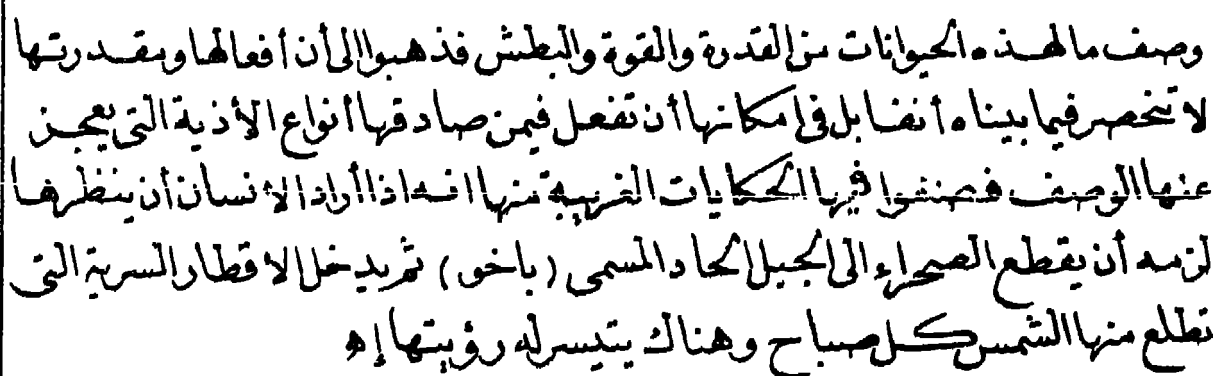 وصف ما لهذه الحيوانات من القدرة والقوة والبطش فذهبوا الى أن أفعالها ومقدرتها
لا تنحصر فيما بيناه أنفا بل فى إمكانها أن تفعل فيمن صادفها أنواع الأذية التى يعجز
عنها الوصف فصنفوا فيها الحكايات الغريبة منها انه اذا أراد الانسان أن ينظرها
لزمه أن يقطع الصحراء الى الجبل الحاد المسمى (باخو) ثم يدخل الاقطار السرية التى
تطلع منها الشمس كل صباح وهناك يتيسر له رؤيتها إه